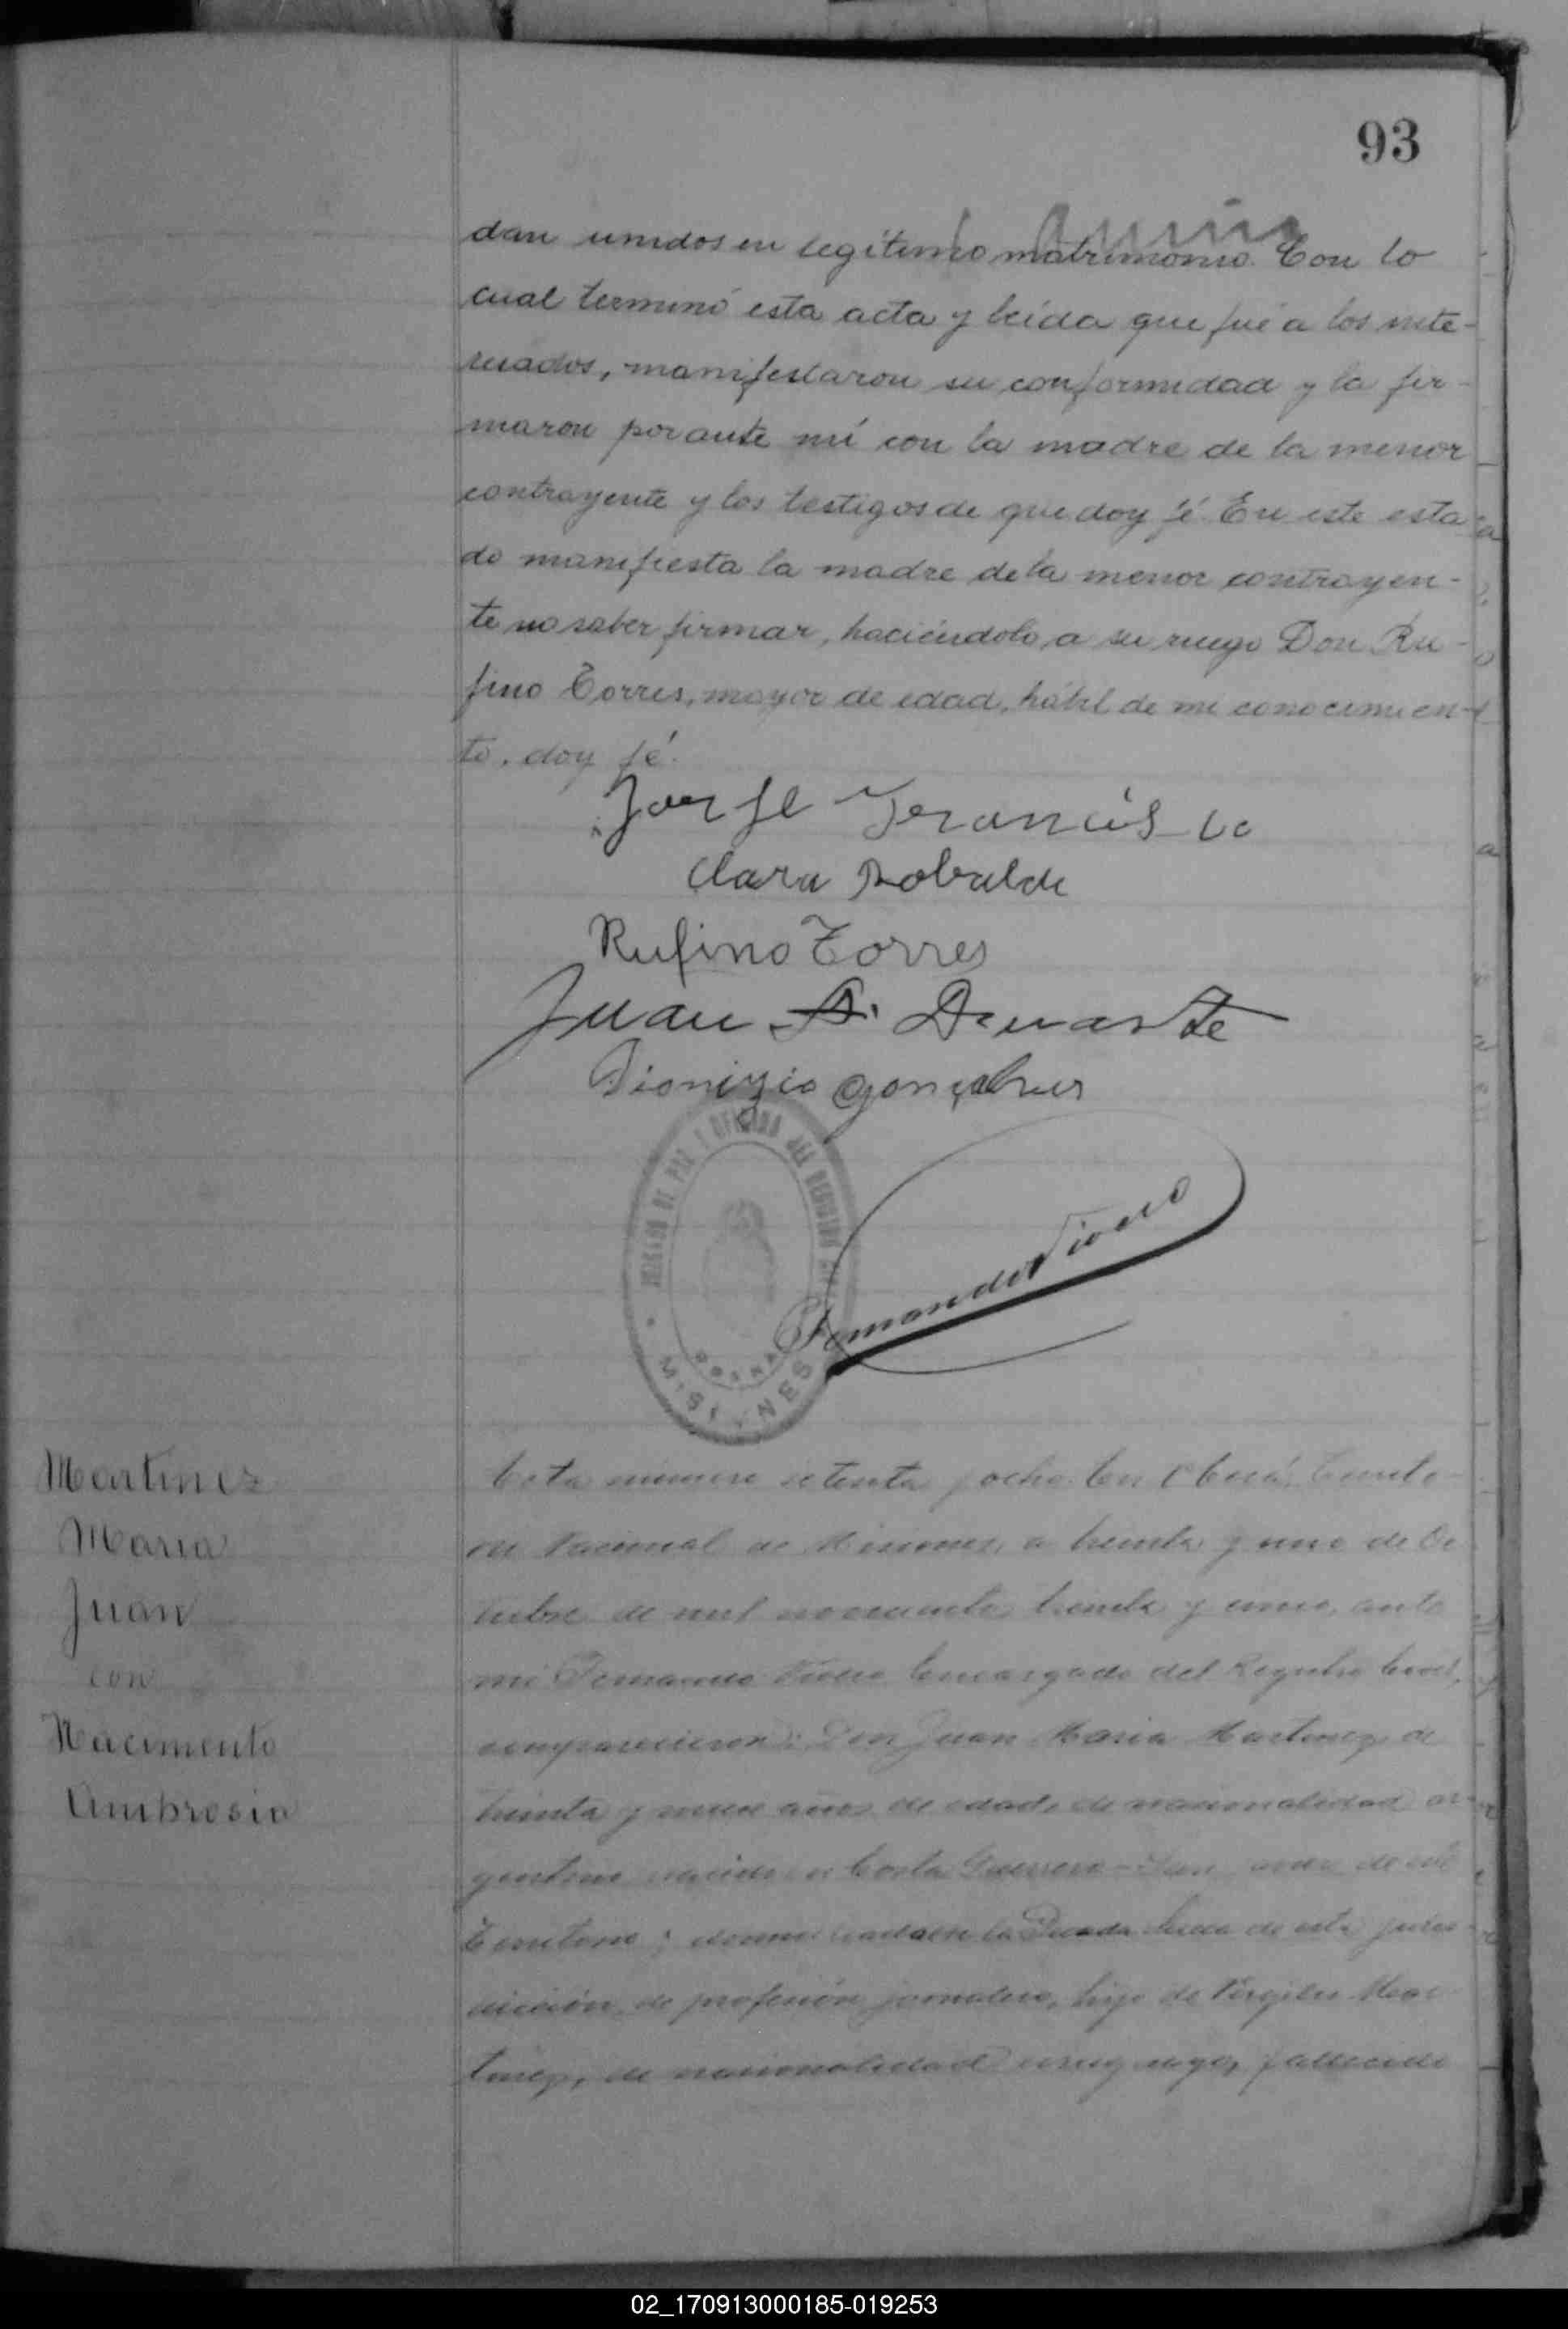 93
dan unidos en legítimo matrimonio. Con lo
cual terminó esta acta y leída que fué a los inte-
resados, manifestaron su conformidad y la fir-
maron por ante mí con la madre de la menor
contrayente y los testigos de que doy fé. En este esta
do manifiesta la madre de la menor contrayen-
te no saber firmar, haciéndolo, a su ruego Don Ru-
fino Torres, mayor de edad, hábil de mi conocimien-
to, doy fé.
Clara Robalde
Rufino Torres
Juan Duarte
Dionizio Gonçalves
JUZGADO DE PAZ Y OFICINA DEL REGISTRO
MISIONES
Fernando
Martinez
Maria
Juan
con
Nacimento
Ambrosia
Acta número setenta y ocho. En Oberá, Territo-
rio Nacional de Misiones, a treinta y uno de Oc
tubre de mil novecientos treinta y uno, ante
mi Fernando Encargado del Registro Civil,
comparecieron: Don Juan Maria Martinez, de
treinta y nueve años de edad, de nacionalidad ar-
gentino nacido en Costa Guerrero de este
Territorio; en la Picada de esta juris-
dicción, de profesión jornalero, hijo de Mar
tinez, de nacionalidad uruguayo, fallecido
02_170913000185-019253